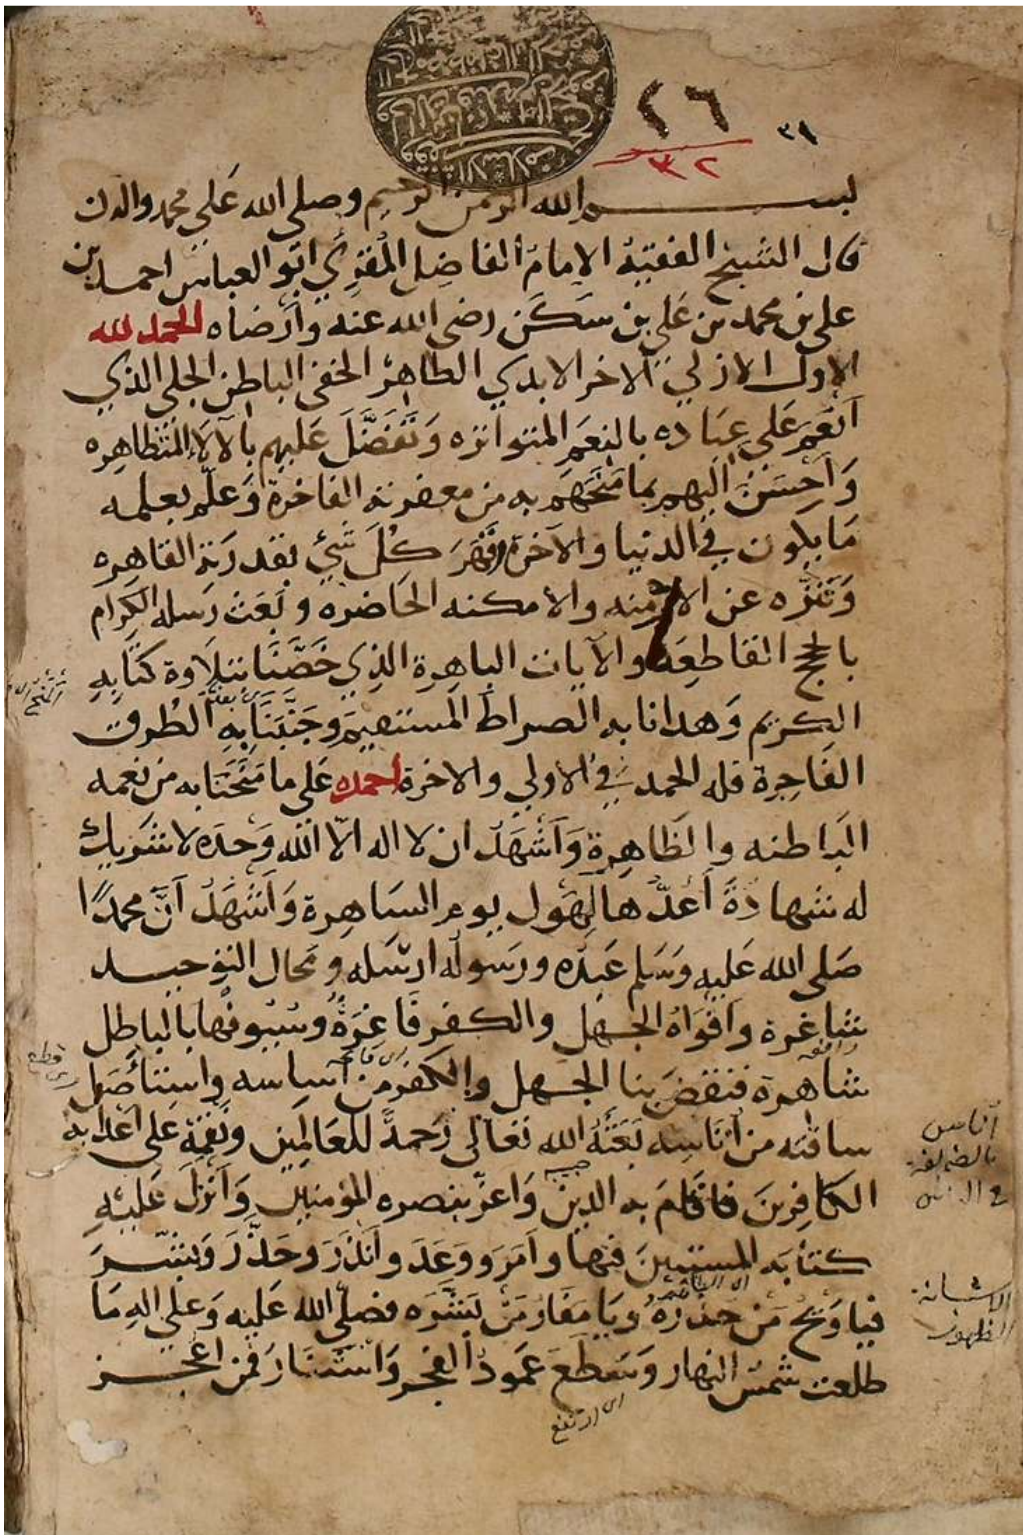 ٢٦
٣٢
٣٩
بسم الله الرحمن الرحيم وصلى الله علي محمد واله
قال الشيخ الفقيه الامام الفاضل المقري ابو العباس احمد بن
علي بن محمد بن علي بن سكن رضي الله عنه وارضاه الحمد لله
الاول الازلي الاخر الابدي الظاهر الخفي الباطن الجلي الذي
اَنعَم عَلي عِبَاده بالنِعَم المتواتره وَتَفَضَّلَ عَليهم بالآلاءِ المُتَظاهِره
وَاَحْسَنَ اليهم بما مَنَحَهَم به من معفرته الفاخرة وَعلّم بعلمه
مَا يكون في الدنيا والآخرة وقَهَرَ كُلَ شَيْ بقدرته القاهِره
وَتَنَزّه عن الازمنه والامكنه الحَاضره وبَعَث رَسله الكِرام
بالحجج القاطِعَه والآيات الباهِرة الذِي خَصَّنَا بتلاوة كتَابِهِ
الكريم وَهدانا به الصراط المستقيم وجَنَّبَنَا بِهِ الطُرق
الفَاجِرة فله الحمد في الاولي والاخرة احمده عَلي ما مَنَحَنَا به من نعمه
البَاطنه والظَاهِرة وَاَشْهَدُ ان لا اله الّا الله وَحدَه لا شَريك
له شهادةً اَعُدّها لِهَولِ يوم السَاهِرة وَاَشْهَدُ اَنَّ محمدًا
صَلى الله عَليه وَسَلم عَبدُه ورَسوله ارسَله ومَحال التوحيد
شاغرة وافواهُ الجَهل والكفر فَاغِرَةٌ وسُيُوفها بالباطل
شاهرة فنقضَ بنا الجهل والكفر من اساسه واستأصَل
سافته من اُنَاسِه بَعَثَهُ الله تعَالى رَحمةً للعَالمِين ونقمة عَلى اَعدايه
الكَافِرينَ فاقَامَ به الدينَ وَاعزّ بنصره المؤمنين وَاَنْزَلَ عَليْهِ
كتابَه المستبينَ فنها وَاَمَرَ ووَعَدَ وانذَرَ وحَذَّرَ وَبَشّرَ
فيا وَيْحَ مَن حذرهُ ويَا مَفَازَ مَنْ بَشَّرَه فصَلّى الله عَليه وَعلى الهِ مَا
طلعت شمسُ النهار وَسَطَعَ عَمودُ الفَجر وَاسْتَنَارَ فمن اعجز
اي ارتفع